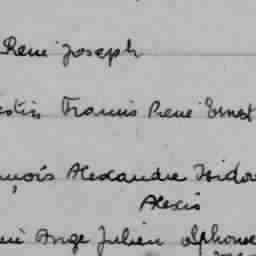 Rene Joseph
estin Francis Rene Ernest
nçois Alexandre Isidor
Alexis
ené Ange Julien Alphonse